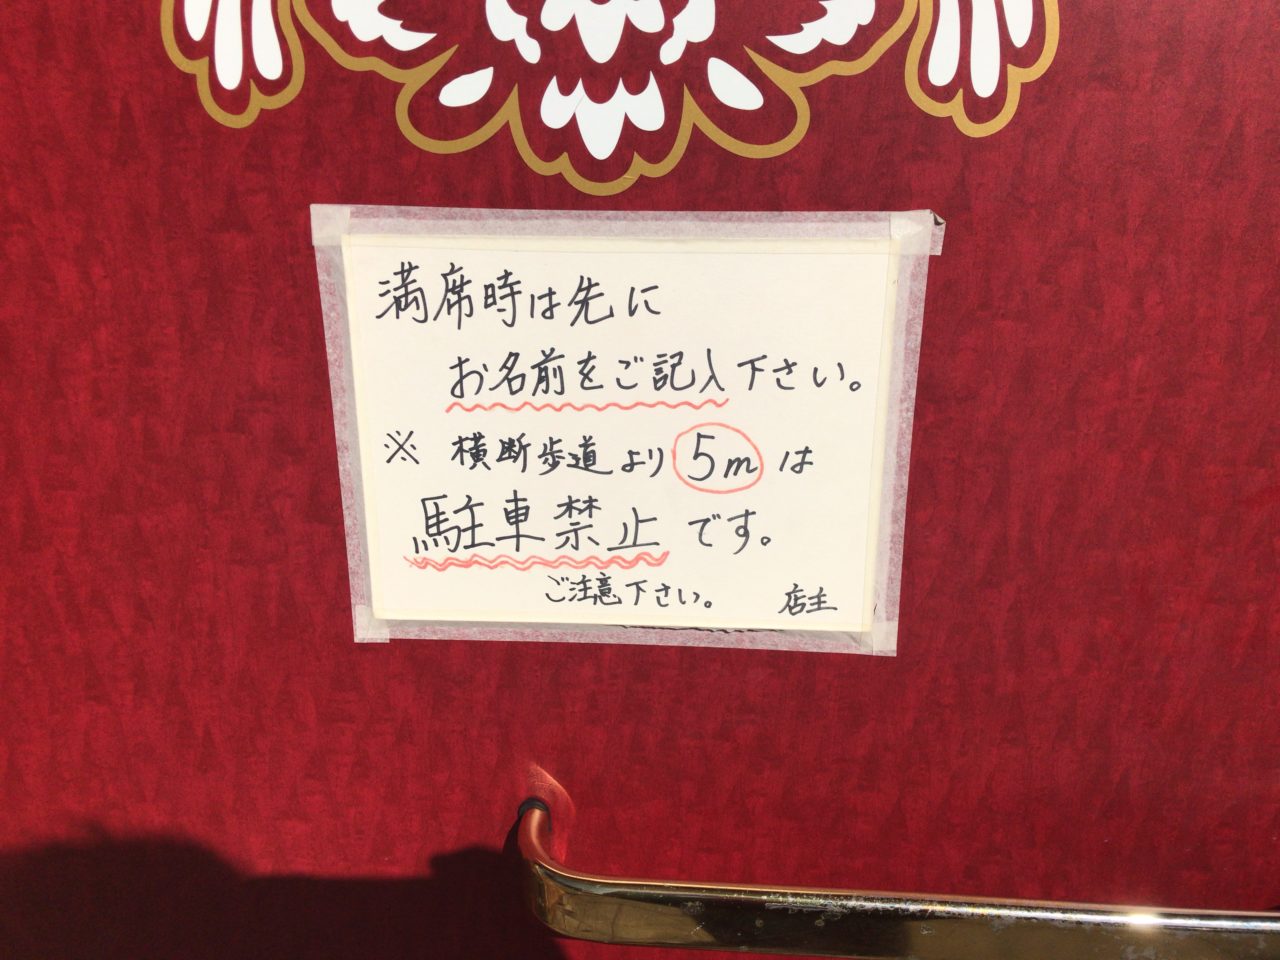 満席時は先に
お名前をご記入下さい。
※ 横断歩道より 5m は
駐車禁止 です。
ご注意下さい。 店主